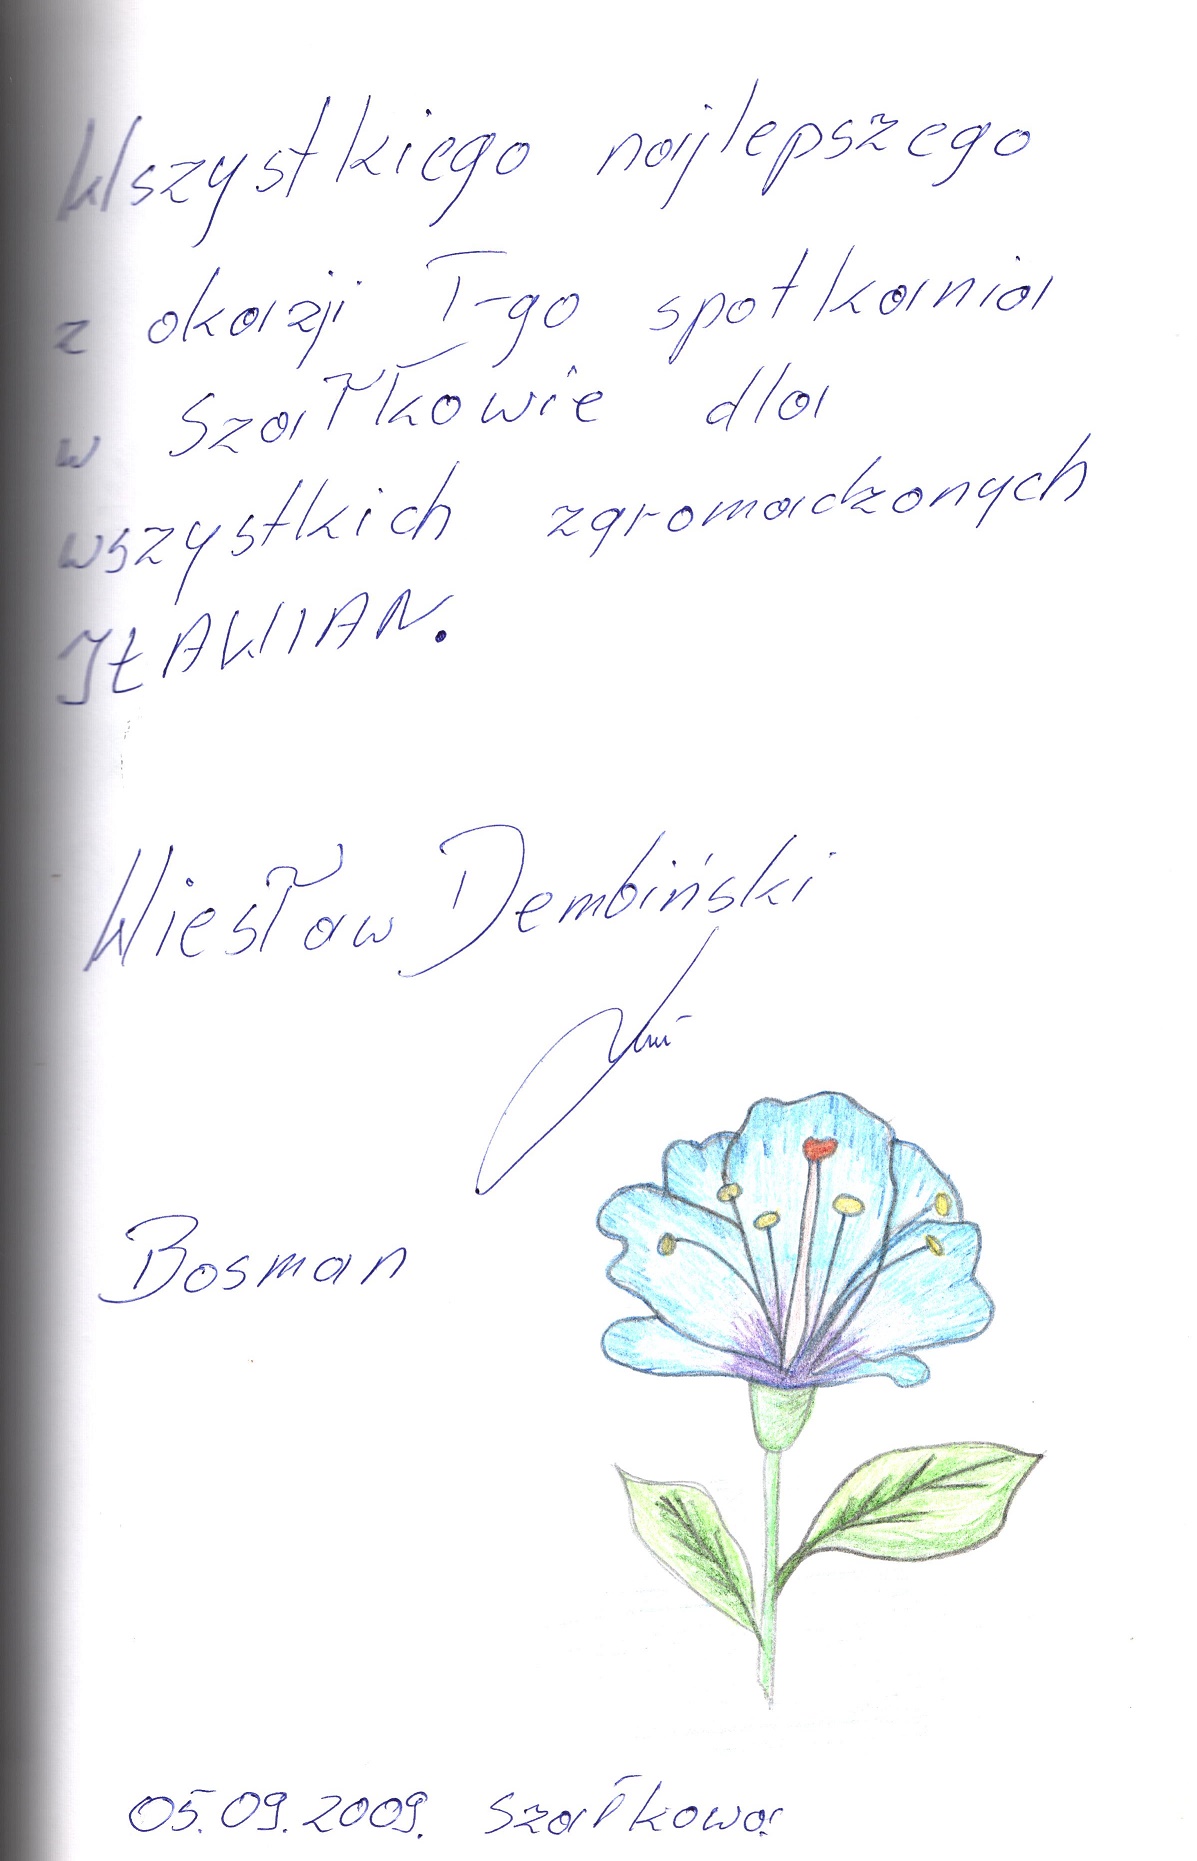 Wszystkiego najlepszego
z okazji I-go spotkania
w Szałkowie dla
wszystkich zgromadzonych
IŁAWIAN.
Wiesław Dembiński
Bosman
05.09.2009. Szałkowo